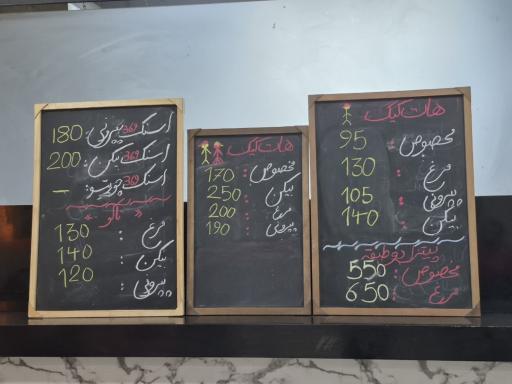 هات کیک
مخصوص : 95
مرغ : 130
پپرونی : 105
بیکن : 140
پیتزا دو طبقه
مخصوص : 550
مرغ : 650
هات کیک
مخصوص : 170
بیکن : 250
مرغ : 200
پپرونی : 190
اسنک 369 پپرونی : 180
اسنک 369 بیکن : 200
اسنک 369 : –
« تاکو »
مرغ : 130
بیکن : 140
پپرونی : 120